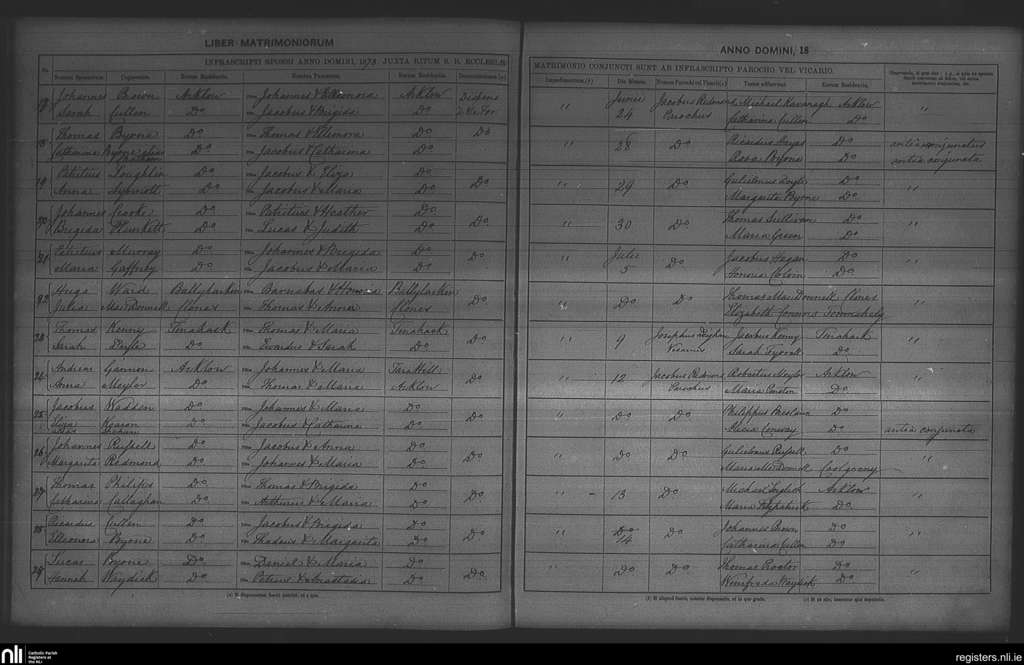 LIBER MATRIMONIORUM
INFRASCRIPTI SPONSI ANNO DOMINI, 1878 JUXTA RITUM S. R. ECCLESIÆ
No. Nomina Sponsorum. Cognomina. Eorum Residentia. Nomina Parentum. Eorum Residentia. Denuntiationes (a)
Johannes Brown Arklow Johannes & Elleonora Arklow Dispens
Sarah Cullen Do Jacobus & Brigida Do
Thomas Byrne Do Thomas & Elleonora Do Do
Catharina Byrne alias Do Jacobus & Catharina Do
Patritius Loughlin Do Jacobus & Eliza Do Do
Anna Do Jacobus & Maria Do
Johannes Cooke Do Patritius & Heather Do Do
Brigida Plunkett Do Lucas & Judith Do
21 Patritius Murray Do Johannes & Brigida Do Do
Maria Gaffney Do Jacobus & Maria Do
22 Hugo Ward Ballylarkin Barnabas & Honoria Ballylarkin Do
Julia MacDonnell Clones Thomas & Anna Clones
23 Thomas Kenny Tinahask Thomas & Maria Tinahask Do
Sarah Doyle Do Edwardus & Sarah Do
24 Andreas Gannon Arklow Johannes & Maria Tara Hill Do
Anna Meyler Do Thomas & Maria Arklow
25 Jacobus Wadden Do Johannes & Maria Do Do
Eliza Kearon Do Jacobus & Catharina Do
alias
26 Johannes Russell Do Jacobus & Anna Do Do
Margarita Redmond Do Johannes & Maria Do
27 Thomas Philips Do Thomas & Brigida Do Do
Catharina Callaghan Do Arthurus & Maria Do
28 Ricardus Cullen Do Jacobus & Brigida Do Do
Elleonora Byrne Do Thadeus & Margarita Do
29 Lucas Byrne Do Daniel & Maria Do Do
Hannah Weydick Do Petrus & Anastasia Do
(a) Si dispensatum fuerit notetur, et a quo.
ANNO DOMINI, 18
MATRIMONIO CONJUNCTI SUNT AB INFRASCRIPTO PAROCHO VEL VICARIO.
Impedimentum. (b) Die Mensis. Nomen Parochi vel Vicarii. Testes adfuerunt. Eorum Residentia.
" Junii Jacobus Redmond Michael Kavanagh Arklow "
24 Parochus Catharina Cullen Do
" 28 Do Ricardus Do antea conjunctus
Rosa Byrne Do antea conjuncta
" 29 Do Gulielmus Doyle Do "
Margarita Byrne Do
" 30 Do Thomas Sullivan Do "
Maria Green Do
" Julii Do Jacobus Hagan Do "
5 Honoria Do
" Do Do Thomas MacDonnell Clones "
Elizabeth Connors
" 9 Josephus Jacobus Kenny Tinahask "
Vicarius Sarah Do
" 12 Jacobus Redmond Robertus Meyler Arklow "
Parochus Maria Do
" Do Do Philippus Do
Alicia Conway Do antea conjuncta
" Do Do Gulielmus Russell Do "
Maria MacDonnell Coolgreany
" 13 Do Michael English Arklow "
Maria Fitzpatrick Do
" Do Do Johannes Brown Do "
14 Catharina Cullen Do
" Do Do Thomas Rector Do "
Winifreda Weydick Do
(b) Si aliquod fuerit, notetur dispensatio, et in quo gradu.
nli
Catholic Parish
Registers at
the NLI
registers.nli.ie